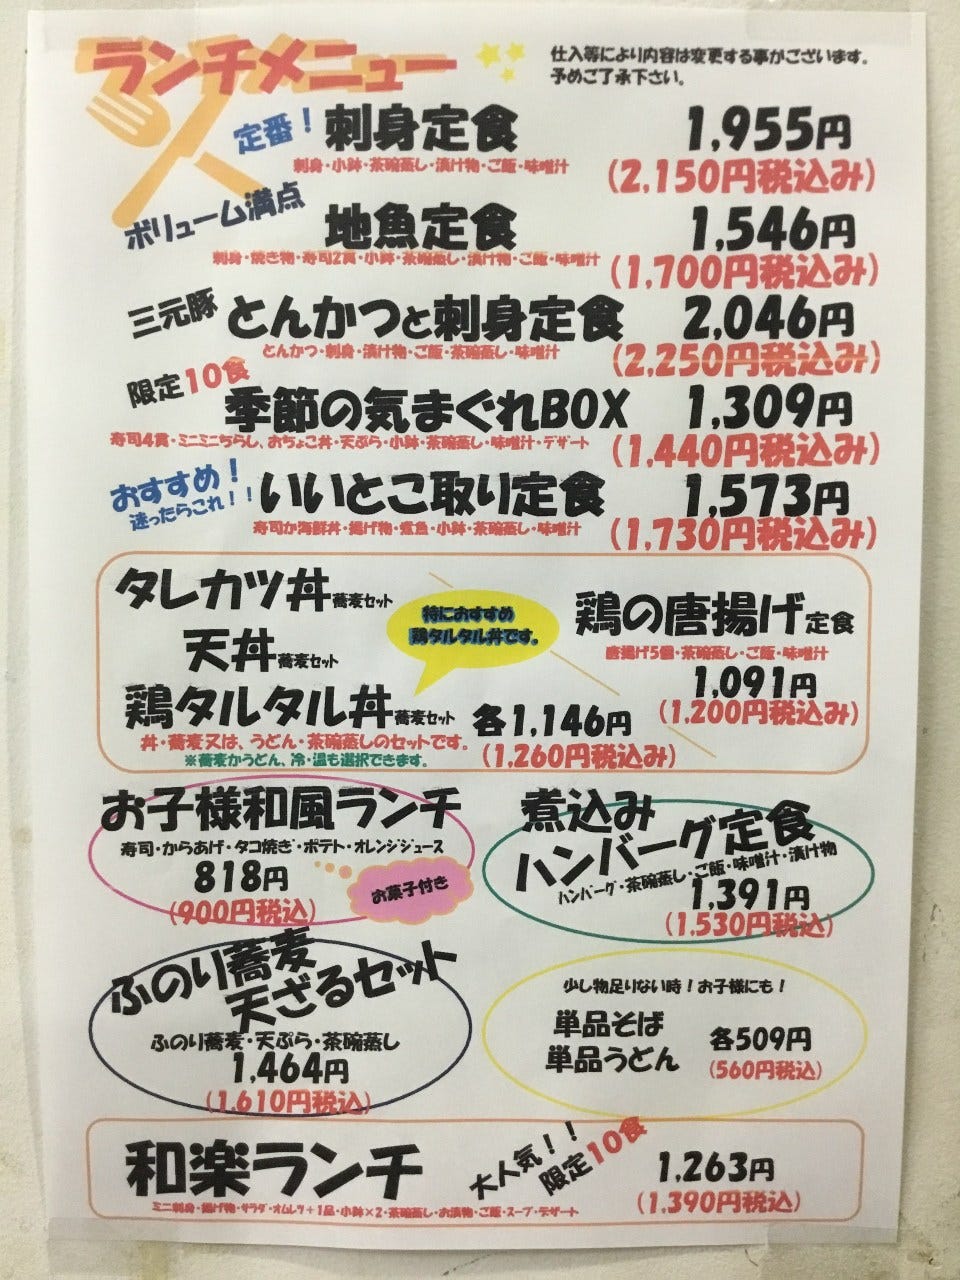 ランチメニュー
仕入等により内容は変更する事がございます。
予めご了承下さい。
定番！ 刺身定食 1,955円
刺身・小鉢・茶碗蒸し・漬け物・ご飯・味噌汁 (2,150円税込み)
ボリューム満点 地魚定食 1,546円
刺身・焼き物・寿司2貫・小鉢・茶碗蒸し・漬け物・ご飯・味噌汁 (1,700円税込み)
三元豚 とんかつと刺身定食 2,046円
とんかつ・刺身・漬け物・ご飯・茶碗蒸し・味噌汁 (2,250円税込み)
限定10食 季節の気まぐれBOX 1,309円
寿司4貫・ミニミニちらし、おちょこ丼・天ぷら・小鉢・茶碗蒸し・味噌汁・デザート (1,440円税込み)
おすすめ！
迷ったらこれ！！ いいとこ取り定食 1,573円
寿司か海鮮丼・揚げ物・煮魚・小鉢・茶碗蒸し・味噌汁 (1,730円税込み)
タレカツ丼蕎麦セット
天丼蕎麦セット
鶏タルタル丼蕎麦セット 各1,146円
丼・蕎麦又は、うどん・茶碗蒸しのセットです。 (1,260円税込み)
※蕎麦かうどん、冷・温も選択できます。
特におすすめ
鶏タルタル丼です。
鶏の唐揚げ定食
唐揚げ5個・茶碗蒸し・ご飯・味噌汁
1,091円
(1,200円税込み)
お子様和風ランチ
寿司・からあげ・タコ焼き・ポテト・オレンジジュース
818円
(900円税込)
お菓子付き
煮込み
ハンバーグ定食
ハンバーグ・茶碗蒸し・ご飯・味噌汁・漬け物
1,391円
(1,530円税込)
ふのり蕎麦
天ざるセット
ふのり蕎麦・天ぷら・茶碗蒸し
1,464円
(1,610円税込)
少し物足りない時！お子様にも！
単品そば
単品うどん
各509円
(560円税込)
和楽ランチ
大人気！！
限定10食
1,263円
ミニ刺身・揚げ物・サラダ・オムレツ＋1品・小鉢×2・茶碗蒸し・お漬物・ご飯・スープ・デザート (1,390円税込)